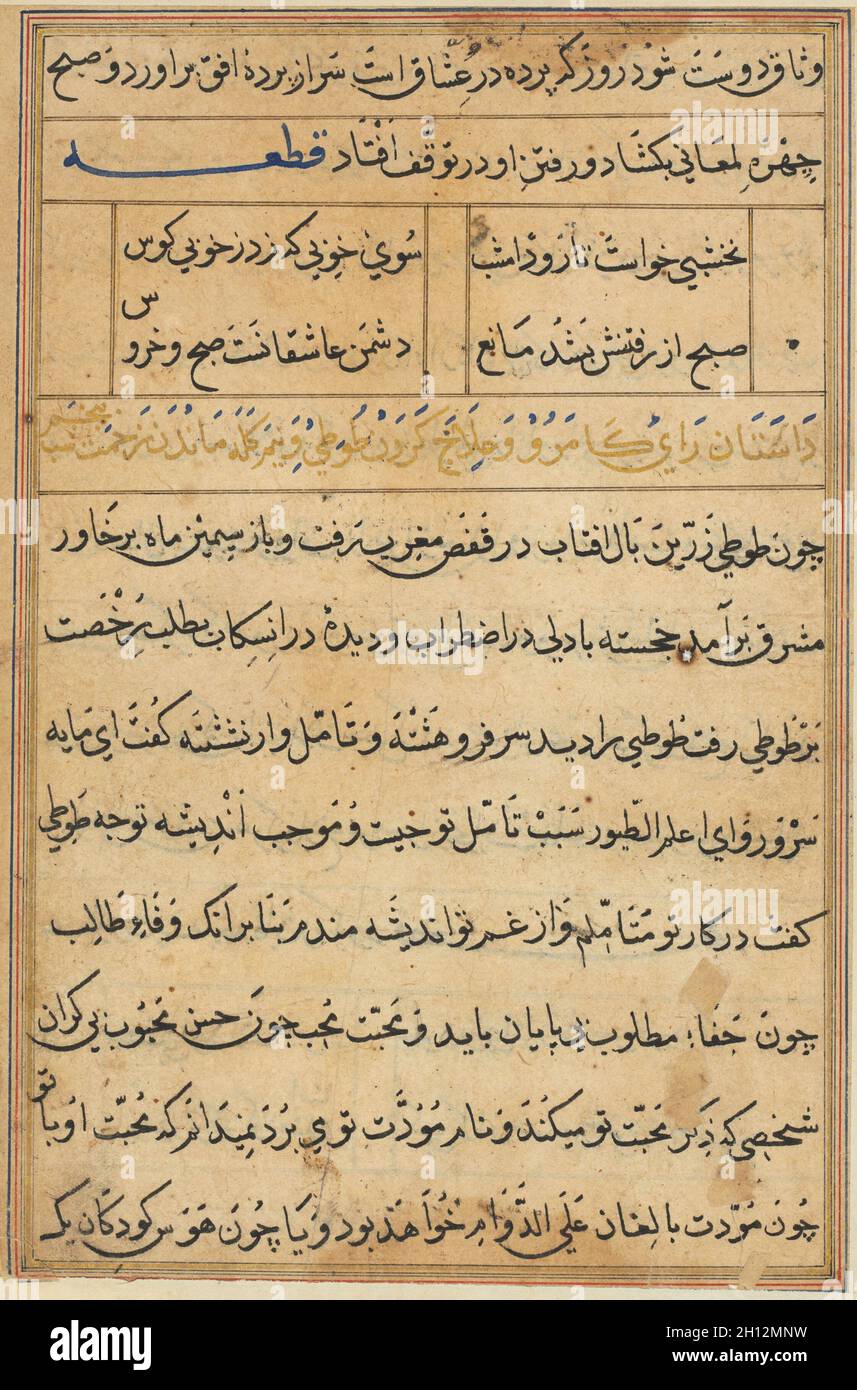 وثاق دوست شود روز که پرده در عشاق است سر از پردهٔ افق براورد و صبح
چهرهٔ لمعانی بکشاد و رفتن او در توقف افتاد قطعه
نخشبی خواست تا رود امشب سوی خوبی که زد ز خوبی کوس
صبح از رفتنش بشد مانع دشمن عاشقانست صبح و خروس
داستان رای کامرو و نیم کله ماندن زحمت شب
چون طوطی زرین بال افتاب در قفص مغرب رفت و باز سیمین ماه بر خاور
مشرق برآمد خجسته با دلی در اضطراب و دیدهٔ در انسکاب بطلب رخصت
بر طوطی رفت طوطی را دید سر فرو هشته و تامل وار نشسته گفت ای مایه
سرور و ای اعلم الطیور سبب تامل تو چیست و موجب اندیشه تو چه طوطی
گفت در کار تو متاملم و از غم تو اندیشه مندم بنا برانک وفاء طالب
چون جفاء مطلوب بی پایان باید و محبت محب چون حسن محبوب بی کران
شخصی که ذکر محبت تو میکند و نام مودت تو می برد نمیدانم که محبت او با تو
چون مودت بالغان علی الدوام خواهد بود و یا چون هوس کودکان یک
alamy
2H12MNW
www.alamy.com